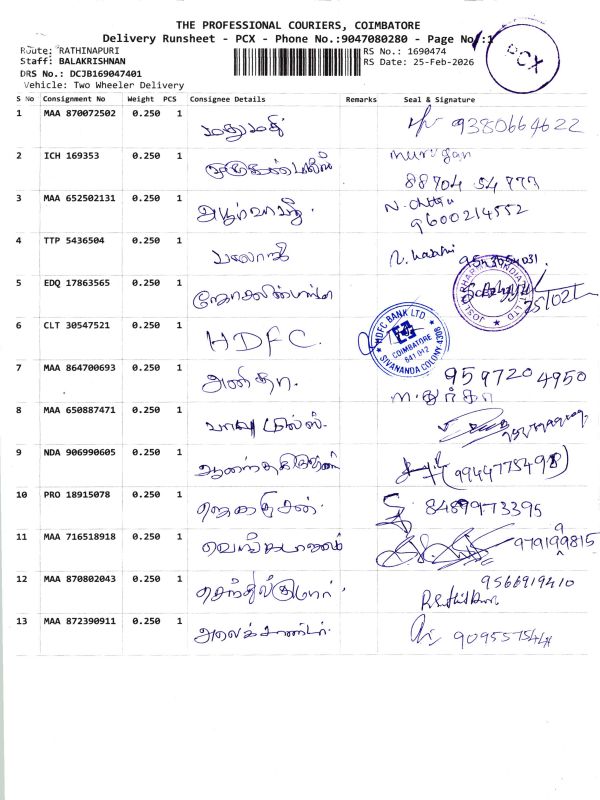 THE PROFESSIONAL COURIERS, COIMBATORE
Delivery Runsheet - PCX - Phone No.:9047080280 - Page No.:1
Route: RATHINAPURI
RS No.: 1690474
Staff: BALAKRISHNAN
RS Date: 25-Feb-2026
DRS No.: DCJB169047401
Vehicle: Two Wheeler Delivery
PCX
S No Consignment No Weight PCS Consignee Details Remarks Seal & Signature
1 MAA 870072502 0.250 1 மதுமதி 9380664622
2 ICH 169353 0.250 1 murugan
88704 54777
3 MAA 652502131 0.250 1 N. Chitra
9600214552
4 TTP 5436504 0.250 1 பாலாஜி
5 EDQ 17863565 0.250 1
6 CLT 30547521 0.250 1 HDFC.
HDFC BANK LTD
COIMBATORE
641 012
SIVANANDA COLONY
7 MAA 864700693 0.250 1 அனிதா. 9597204950
8 MAA 650887471 0.250 1 பாபு மில்ஸ். ம.துர்கா
9 NDA 906990605 0.250 1 (9944775498)
10 PRO 18915078 0.250 1 8489973395
11 MAA 716518918 0.250 1 வெங்கடாஜலம்
12 MAA 870802043 0.250 1 செந்தில்குமார். 9566919410
13 MAA 872390911 0.250 1 அலெக்சாண்டர்.